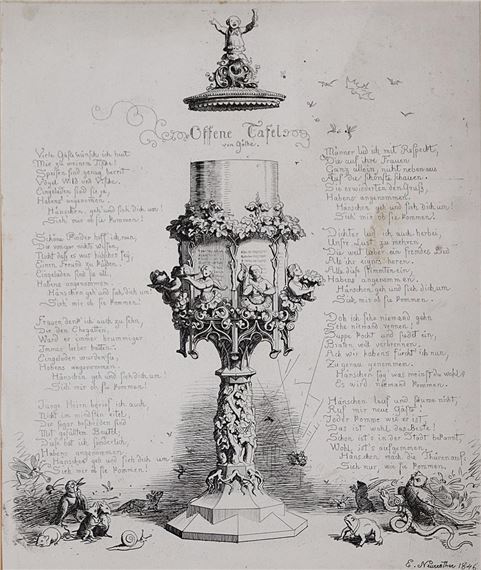 Offene Tafel
von Göthe.
Viele Gäste wünsch' ich heut
Mir zu meinem Tische!
Speisen sind genug bereit
Vögel, Wild und Fische.
Eingeladen sind sie ja,
Habens angenommen.
Hänschen, geh und sieh dich um!
Sieh' mir ob sie kommen!
Schöne Kinder hoff' ich nun,
Die von gar nichts wissen,
Nicht daß es was hübsches sey,
Einen Freund zu küssen.
Eingeladen sind sie all,
Habens angenommen.
Hänschen geh und sieh dich um!
Sieh mir ob sie kommen!
Frauen denk' ich auch zu sehn,
Die den Ehegatten,
Ward er immer brummiger
Immer lieber hatten.
Eingeladen wurden sie,
Habens angenommen.
Hänschen, geh und sieh dich um!
Sieh mir ob sie kommen!
Junge Herrn berief ich auch,
Nicht im mindsten eitel,
Die sogar bescheiden sind
Mit gefülltem Beutel,
Diese bat ich sonderlich,
Habens angenommen.
Hänschen geh und sieh dich um
Sieh mir ob sie kommen!
Männer lud ich mit Respect,
Die auf ihre Frauen
Ganz allein, nicht neben aus
Auf die schönste schauen.
Sie erwiederten den Gruß,
Habens angenommen.
Hänschen, geh und sieh dich um!
Sieh mir ob sie kommen.
Dichter lud ich auch herbei,
Unsre Lust zu mehren,
Die weit lieber ein fremdes Lied
Als ihr eignes hören.
Alle diese stimmten ein,
Habens angenommen.
Hänschen, geh und sieh dich um
Sieh mir ob sie kommen.
Doch ich sehe niemand gehn
Sehe niemand rennen;
Suppe kocht und siedet ein,
Braten will verbrennen.
Ach wir habens fürcht' ich nun,
Zu genau genommen.
Hänschen sag was meinst du wohl?
Es wird niemand kommen.
Hänschen lauf und säume nicht,
Ruf mir neue Gäste!
Jeder komme wie er ist,
Das ist wohl das Beste!
Schon ist's in der Stadt bekannt,
Wohl ist's aufgenommen.
Hänschen, mach die Thüren auf,
Sieh nur, wie sie kommen.
E. Neureuther 1846